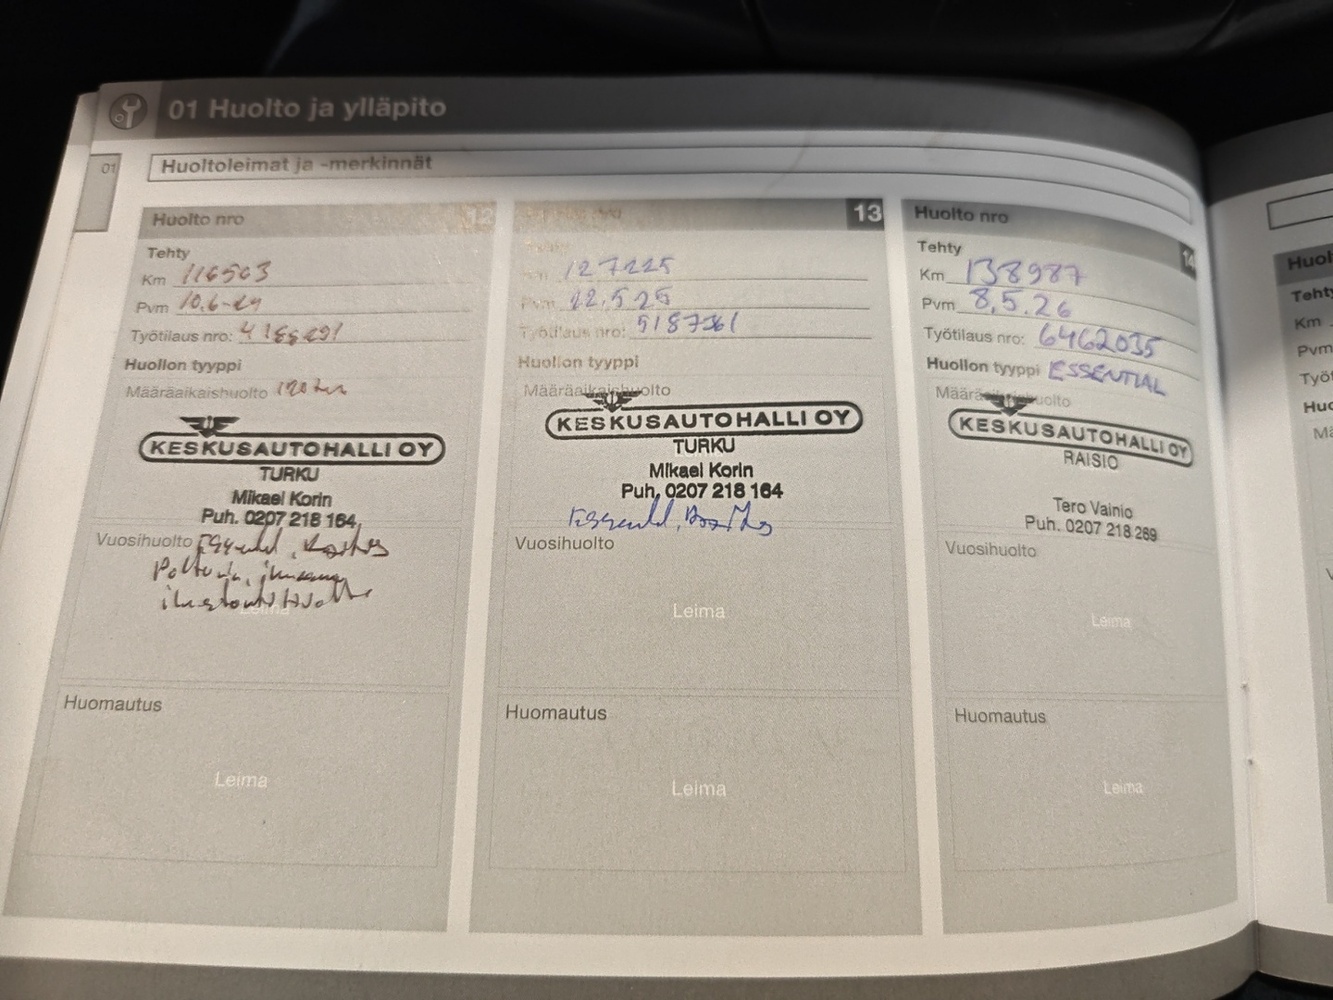 01 Huolto ja ylläpito
01
Huoltoleimat ja -merkinnät
Huolto nro 12
Tehty
Km 116503
Pvm 10.6-24
Työtilaus nro:
Huollon tyyppi
Määräaikaishuolto
KESKUSAUTOHALLI OY
TURKU
Mikael Korin
Puh. 0207 218 164
Vuosihuolto
Leima
Huomautus
Leima
13
Km 127225
Pvm 22.5.25
Työtilaus nro: 5187361
Huollon tyyppi
Määräaikaishuolto
KESKUSAUTOHALLI OY
TURKU
Mikael Korin
Puh. 0207 218 164
Vuosihuolto
Leima
Huomautus
Leima
Huolto nro 14
Tehty
Km 138987
Pvm 8.5.26
Työtilaus nro: 6462035
Huollon tyyppi ESSENTIAL
Määräaikaishuolto
KESKUSAUTOHALLI OY
RAISIO
Tero Vainio
Puh. 0207 218 269
Vuosihuolto
Leima
Huomautus
Leima
Tehty
Km